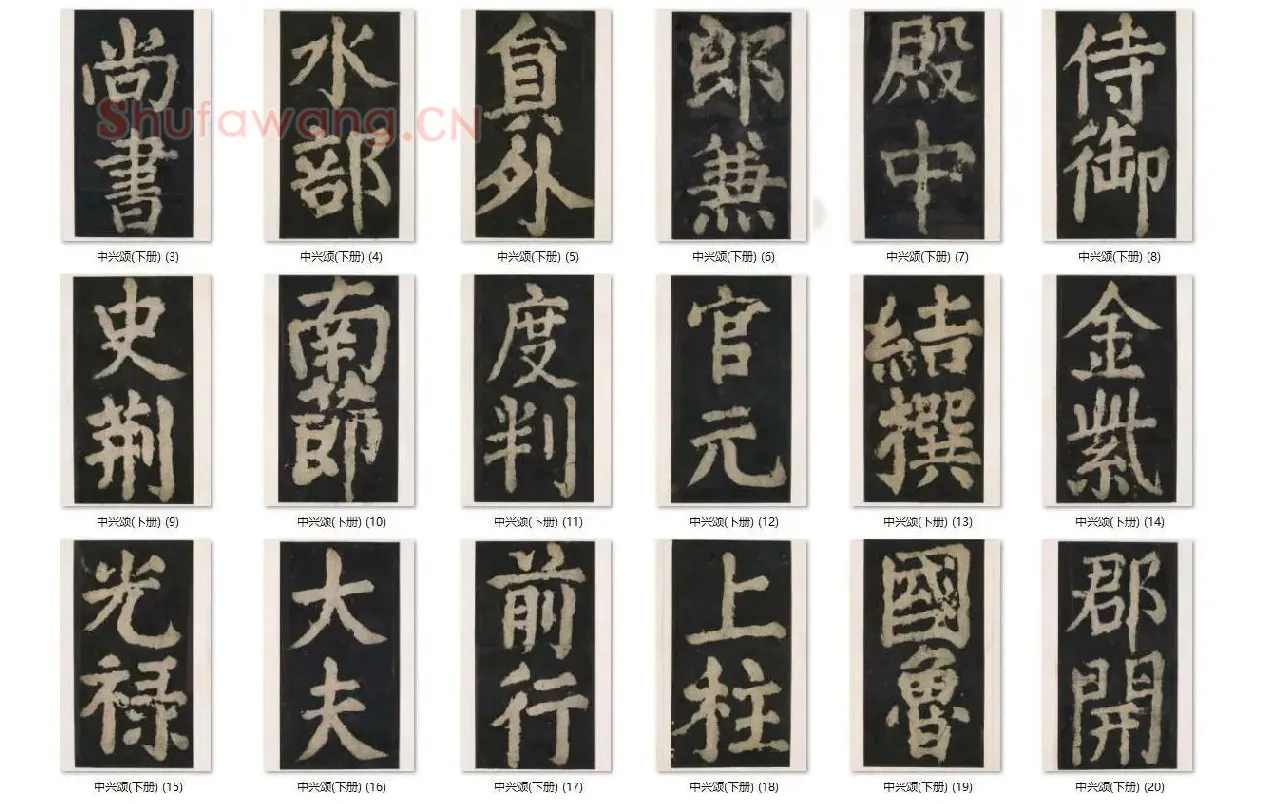 尚書
水部
貟外
郎兼
殿中
侍御
Shufawang.CN
中兴颂(下册) (3)
中兴颂(下册) (4)
中兴颂(下册) (5)
中兴颂(下册) (6)
中兴颂(下册) (7)
中兴颂(下册) (8)
史荆
南莭
度判
官元
結撰
金紫
中兴颂(下册) (9)
中兴颂(下册) (10)
中兴颂(下册) (11)
中兴颂(下册) (12)
中兴颂(下册) (13)
中兴颂(下册) (14)
光禄
大夫
前行
上柱
國魯
郡開
中兴颂(下册) (15)
中兴颂(下册) (16)
中兴颂(下册) (17)
中兴颂(下册) (18)
中兴颂(下册) (19)
中兴颂(下册) (20)